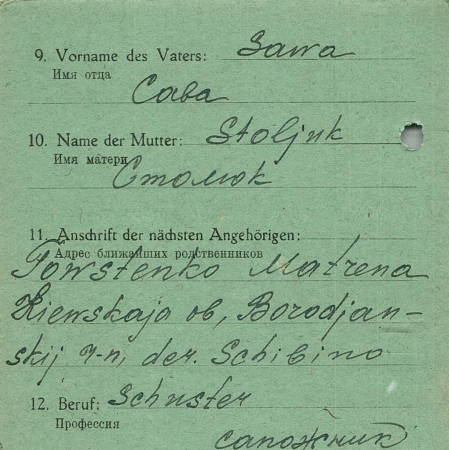 9. Vorname des Vaters: Sawa
Имя отца
Сава
10. Name der Mutter: Stoljuk
Имя матери
Столюк
11. Anschrift der nächsten Angehörigen:
Адрес ближайших родственников
Towstenko Matrena
Kiewskaja ob, Borodjan-
skij r-n, der. Schibino
12. Beruf: Schuster
Профессия
сапожник